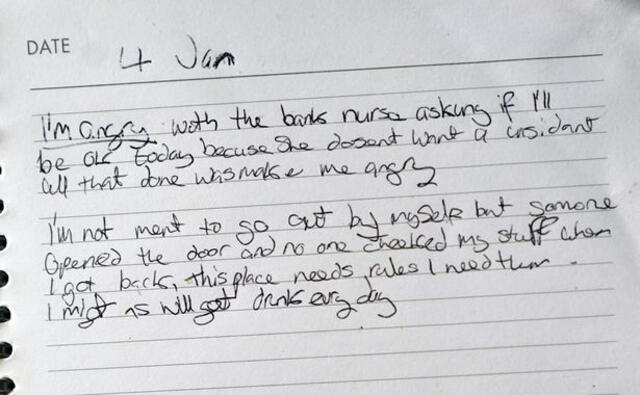 DATE 4 Jan
I'm angry with the banks nurse asking if I'll
be ok today because she doesent want a insidant
all that done was make me angry
I'm not ment to go out by myself but somone
opened the door and no one cheeked my stuff when
I got backs, this place needs rules I need them.
I might as will get drinks evry day